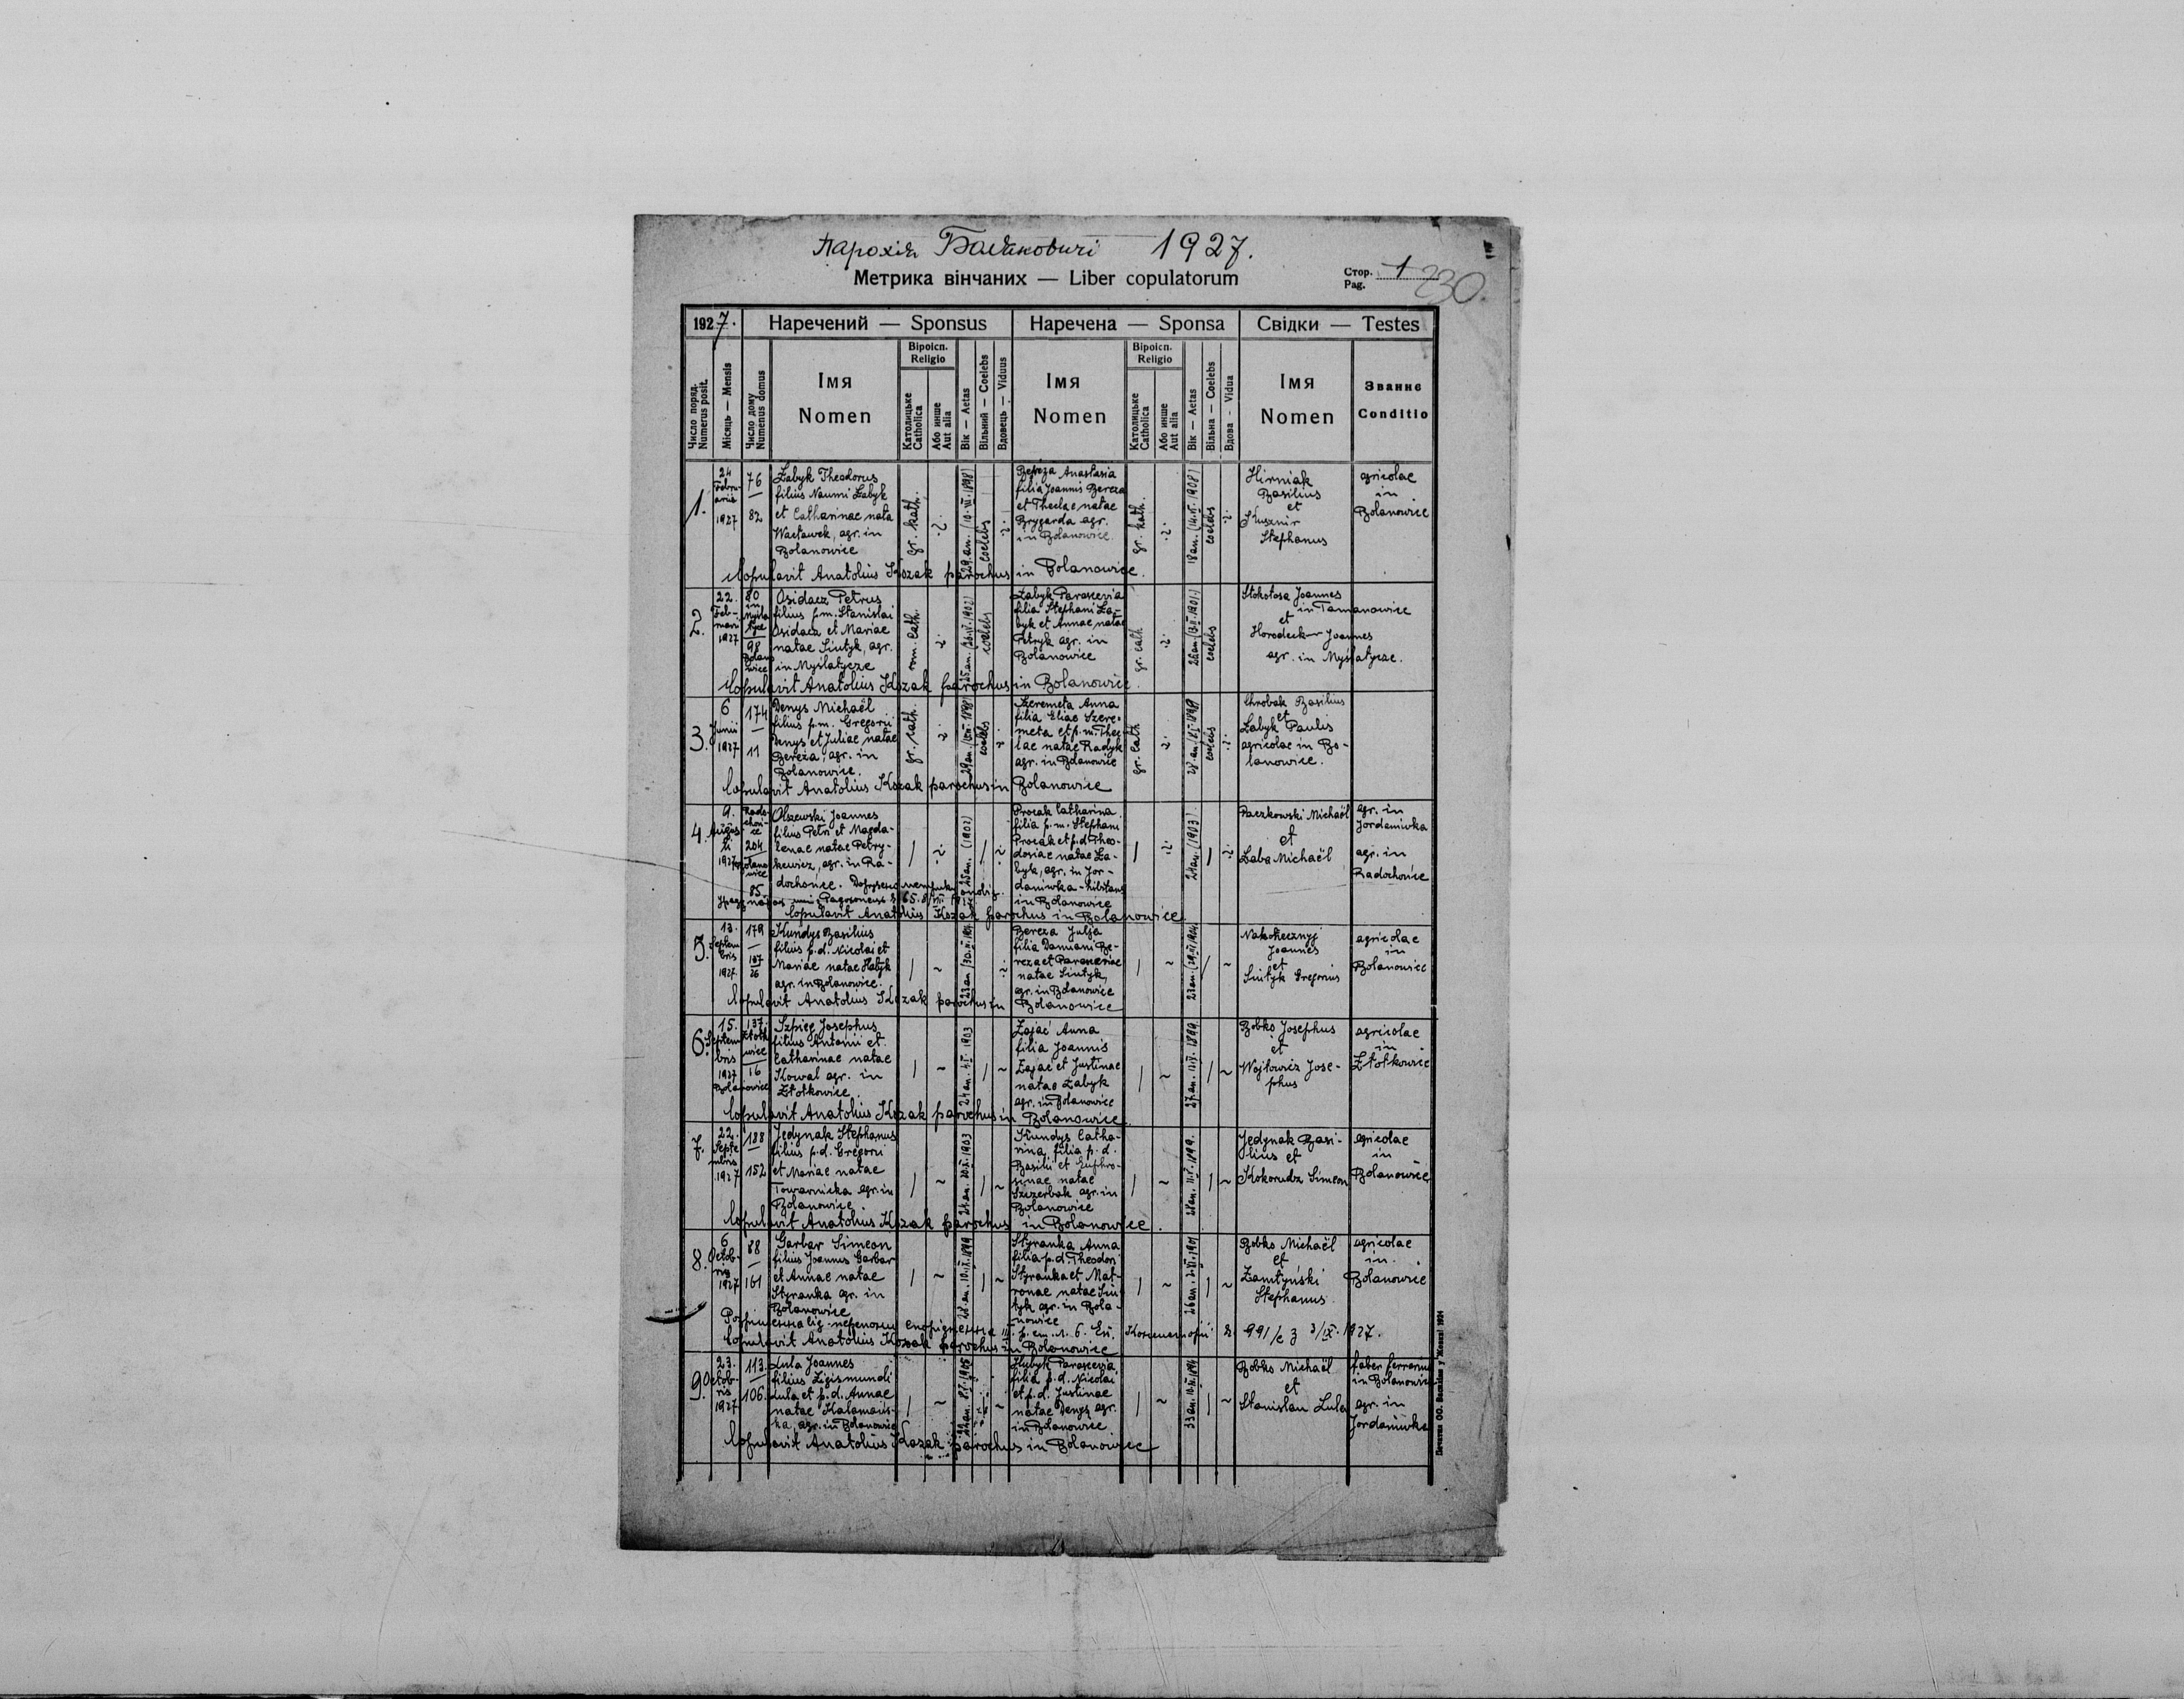 Парохія Болановичі 1927.
Метрика вінчаних — Liber copulatorum
Стор. Pag. 1
230.
1927.
Наречений — Sponsus
Наречена — Sponsa
Свідки — Testes
Число поряд. Numerus posit.
Місяць — Mensis
Число дому Numenus domus
Імя Nomen
Віроісп. Religio
Католицьке Catholica
Або инше Aut alia
Вік — Aetas
Вільний — Coelebs
Вдовець — Viduus
Імя Nomen
Віроісп. Religio
Католицьке Catholica
Або инше Aut alia
Вік — Aetas
Вільна — Coelebs
Вдова - Vidua
Імя Nomen
Званнє Conditio
1.
24 Febru-
arii
1927
76
—
82
Łabyk Theodorus
filius Naumi Łabyk
et Catharinae nata
Wacławek, agr. in
Bolanowice
gr. kath.
29. an. (10. III. 1898)
coelebs
Bereza Anastasia
filia Joannis Bereza
et Theclae natae
Brygarda agr.
in Bolanowice
gr. kath.
18 an. (14. V. 1908)
coelebs
Hirniak
Basilius
et
Kusznir
Stephanus
agricolae
in
Bolanowice
Copulavit Anatolius Kozak parochus in Bolanowice.
2.
22.
Feb-
ruarii
1927
80
in
Myśla-
tycze
98
Bolano-
wice
Osidacz Petrus
filius p.m. Stanislai
Osidacz et Mariae
natae Siutyk, agr.
in Myślatycze
rom. cath.
25. an. 1902)
coelebs
Łabyk Parascevia
filia Stephani Ła-
byk et Annae natae
Petryk agr. in
Bolanowice
gr. cath.
26 an. 1901)
coelebs
Stokołosa Joannes
in Tamanowice
et
Horodecki Joannes
agr. in Myślatycze.
Copulavit Anatolius Kozak parochus in Bolanowice.
3.
6
Junii
1927
174
—
11
Denys Michaël
filius p.m. Gregorii
Denys et Juliae natae
Bereza, agr. in
Bolanowice.
gr. cath.
29 an. 1898)
coelebs
Szeremeta Anna
filia Eliae Szere-
meta et p.m. Thec-
lae natae Radyk
agr. in Bolanowice
gr. cath
28. an. 1898)
coelebs
Chrobak Basilius
et
Łabyk Paulus
agricolae in Bo-
lanowice.
Copulavit Anatolius Kozak parochus in Bolanowice
4.
9.
Augus-
ti
1927
Rado-
choń-
ce
204
Bolano-
wice
85
Olszewski Joannes
filius Petri et Magda-
lenae natae Petry-
kewicz, agr. in Ra-
dochońce.
25 an. (1902)
Procak Catharina
filia p.m. Stephani
Procak et p.d. Theo-
dosiae natae Ła-
byk, agr. in Jor-
daniwka - habitans
in Bolanowice
24 an. (1903)
Paczkowski Michaël
et
Łaba Michaël
agr. in
Jordaniwka
agr. in
Radochońce
Copulavit Anatolius Kozak parochus in Bolanowice
5.
13.
Septem
bris
1927
179
—
107
26
Kundys Basilius
filius p.d. Nicolai et
Mariae natae Hubyk
agr. in Bolanowice.
23 an
Bereza Julja
filia Damiani Be-
reza et Parasceviae
natae Siutyk,
agr. in Bolanowice
23 an.
Joannes
et
Siutyk Gregorius
agricolae
in
Bolanowice
Copulavit Anatolius Kozak parochus in Bolanowice
6.
15.
Septem
bris
1927
137.
Złotk
owice
16
Bolanowice
Szpieg Josephus
filius Antonii et
Catharinae natae
Kowal agr. in
Złotkowice.
24 an. 1903
Zając Anna
filia Joannis
Zając et Justinae
natae Łabyk
agr. in Bolanowice
27. an. 1899.
Bobko Josephus
et
Wojtowicz Jose-
phus
agricolae
in
Złotkowice
Copulavit Anatolius Kozak parochus in Bolanowice.
7.
22.
Septe
mbris
1927
188
—
152
Jedynak Stephanus
filius p.d. Gregorii
et Mariae natae
Towarnicka agr. in
Bolanowice.
24 an. 1903
Kundys Catha-
rina, filia p.d.
Basilii et Euphro-
sinae natae
Szczerbak agr. in
Bolanowice
28 an. 1899.
Jedynak Basi-
lius et
Kokorudz Simeon
agricolae
in
Bolanowice
Copulavit Anatolius Kozak parochus in Bolanowice.
8.
6
Octob-
ris
1927
88
—
161
Garbar Simeon
filius Joannis Garbar
et Annae natae
Styranka agr. in
Bolanowice
28 an. 1899
Styranka Anna
filia p.d. Theodori
Styranka et Mat-
ronae natae Siu-
tyk agr. in Bola-
nowice
26 an. 1901
Bobko Michaël
et
Zamtyński
Stephanus.
agricolae
in
Bolanowice
991/ 1927.
Copulavit Anatolius Kozak parochus in Bolanowice
9.
23.
Octob-
ris
1927
113.
—
106.
Lula Joannes
filius Zigismundi
Lula et p.d. Annae
natae
agr. in Bolanowice
22 an. 1905
Hubyk Parascevia
filia p.d. Nicolai
et p.d. Justinae
natae Denys agr.
in Bolanowice
33 an. 1894
Bobko Michaël
et
Stanislau Lula
faber ferrarius
in Bolanowice
agr. in
Jordaniwka
Copulavit Anatolius Kozak parochus in Bolanowice
Печатня ОО. Василіян у Жовкві 1924